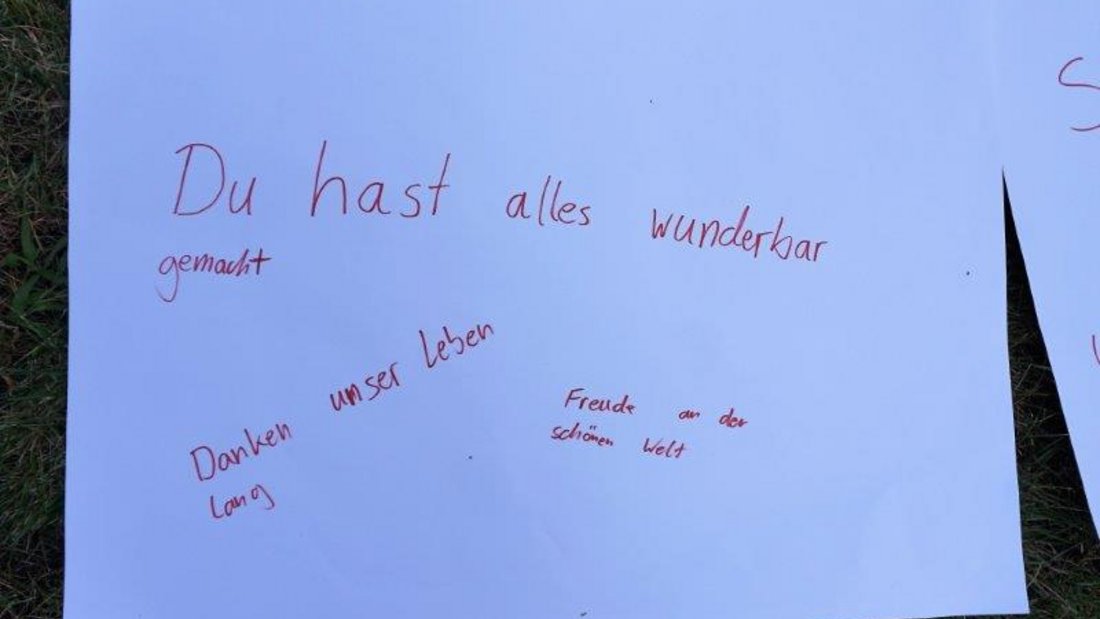 Du hast alles wunderbar
gemacht
Danken unser Leben
lang
Freude an der
schönen Welt
S